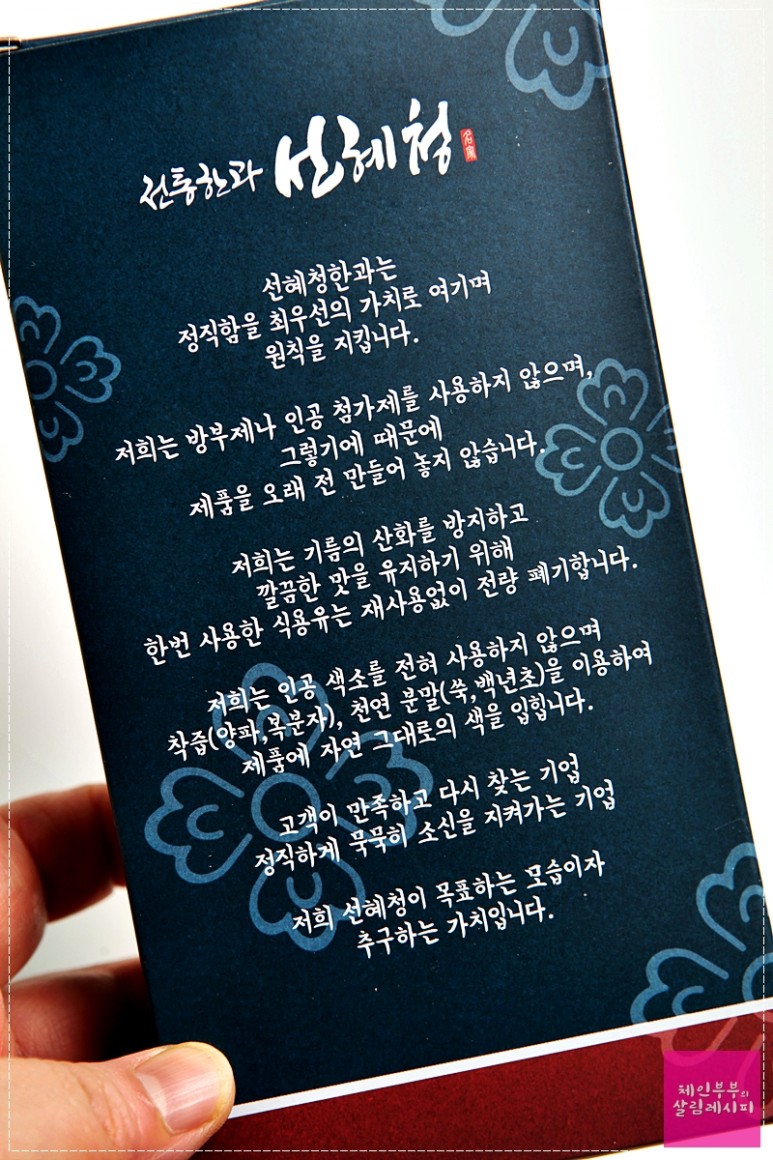 전통한과 선혜청
선혜청한과는
정직함을 최우선의 가치로 여기며
원칙을 지킵니다.
저희는 방부제나 인공 첨가제를 사용하지 않으며,
그렇기에 때문에
제품을 오래 전 만들어 놓지 않습니다.
저희는 기름의 산화를 방지하고
깔끔한 맛을 유지하기 위해
한번 사용한 식용유는 재사용없이 전량 폐기합니다.
저희는 인공 색소를 전혀 사용하지 않으며
착즙(양파,복분자), 천연 분말(쑥,백년초)을 이용하여
제품에 자연 그대로의 색을 입힙니다.
고객이 만족하고 다시 찾는 기업
정직하게 묵묵히 소신을 지켜가는 기업
저희 선혜청이 목표하는 모습이자
추구하는 가치입니다.
체인부부의
살림레시피